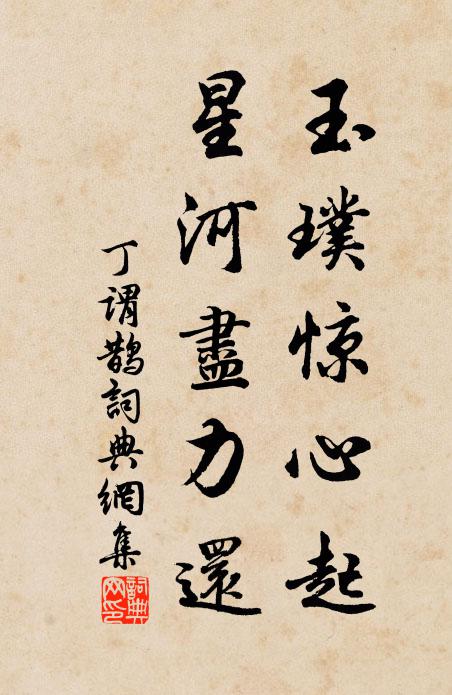 玉璞惊心起
星河盡力還
丁谓鵲詞典網集
詞典网印